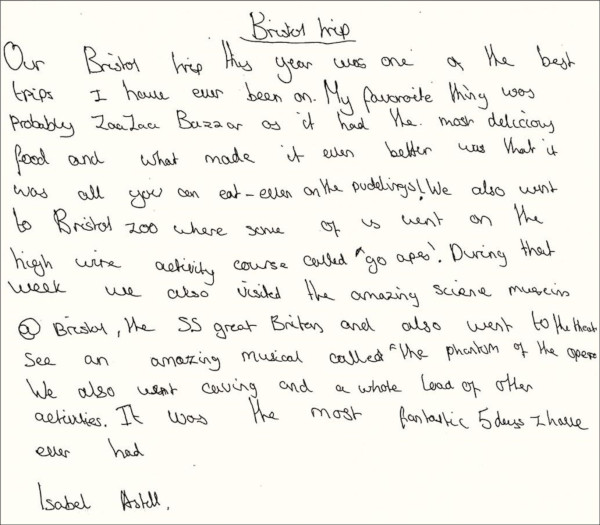 Bristol trip
Our Bristol trip this year was one of the best
trips I have ever been on. My favoroite thing was
probably ZaaZaa Bazzar as it had the most delicious
food and what made it even better was that it
was all you can eat - even on the puddings! We also went
to Bristol zoo where some of us went on the
high wire activity course called "go apes". During that
week we also visited the amazing science museum
@ Bristol, the SS great Britain and also went to the theatre
see an amazing musical called "the phantom of the opera
We also went caving and a whole load of other
activities. It was the most fantastic 5 days I have
ever had
Isabel Astell.